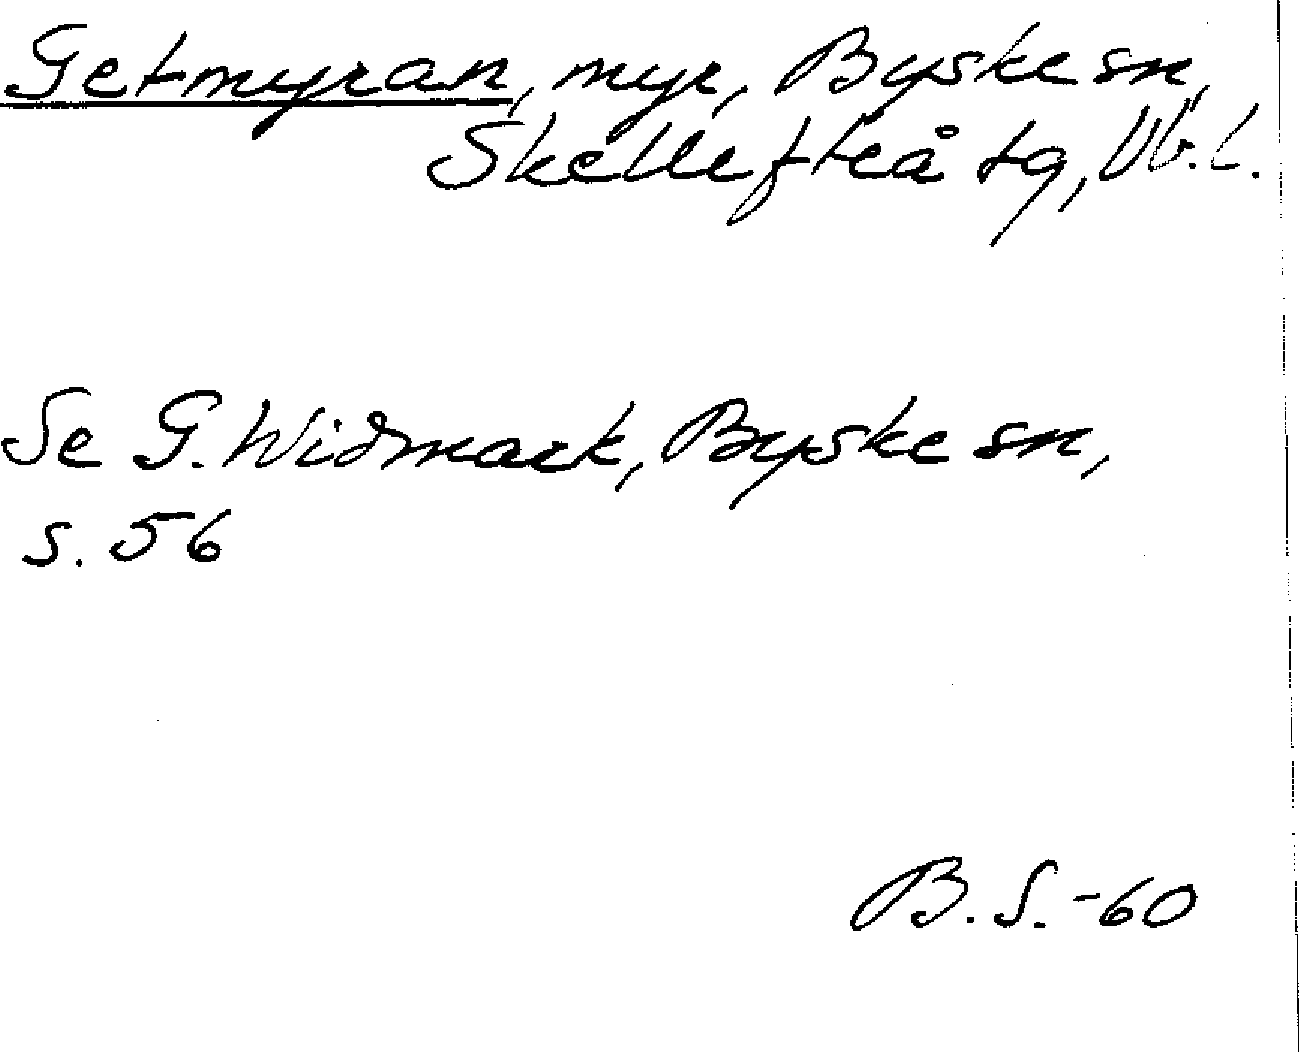 Getmyran, myr, Byske sn,
Skellefteå tg, Vb.l.
Se G. Widmark, Byske sn,
s. 56
B.S.-60